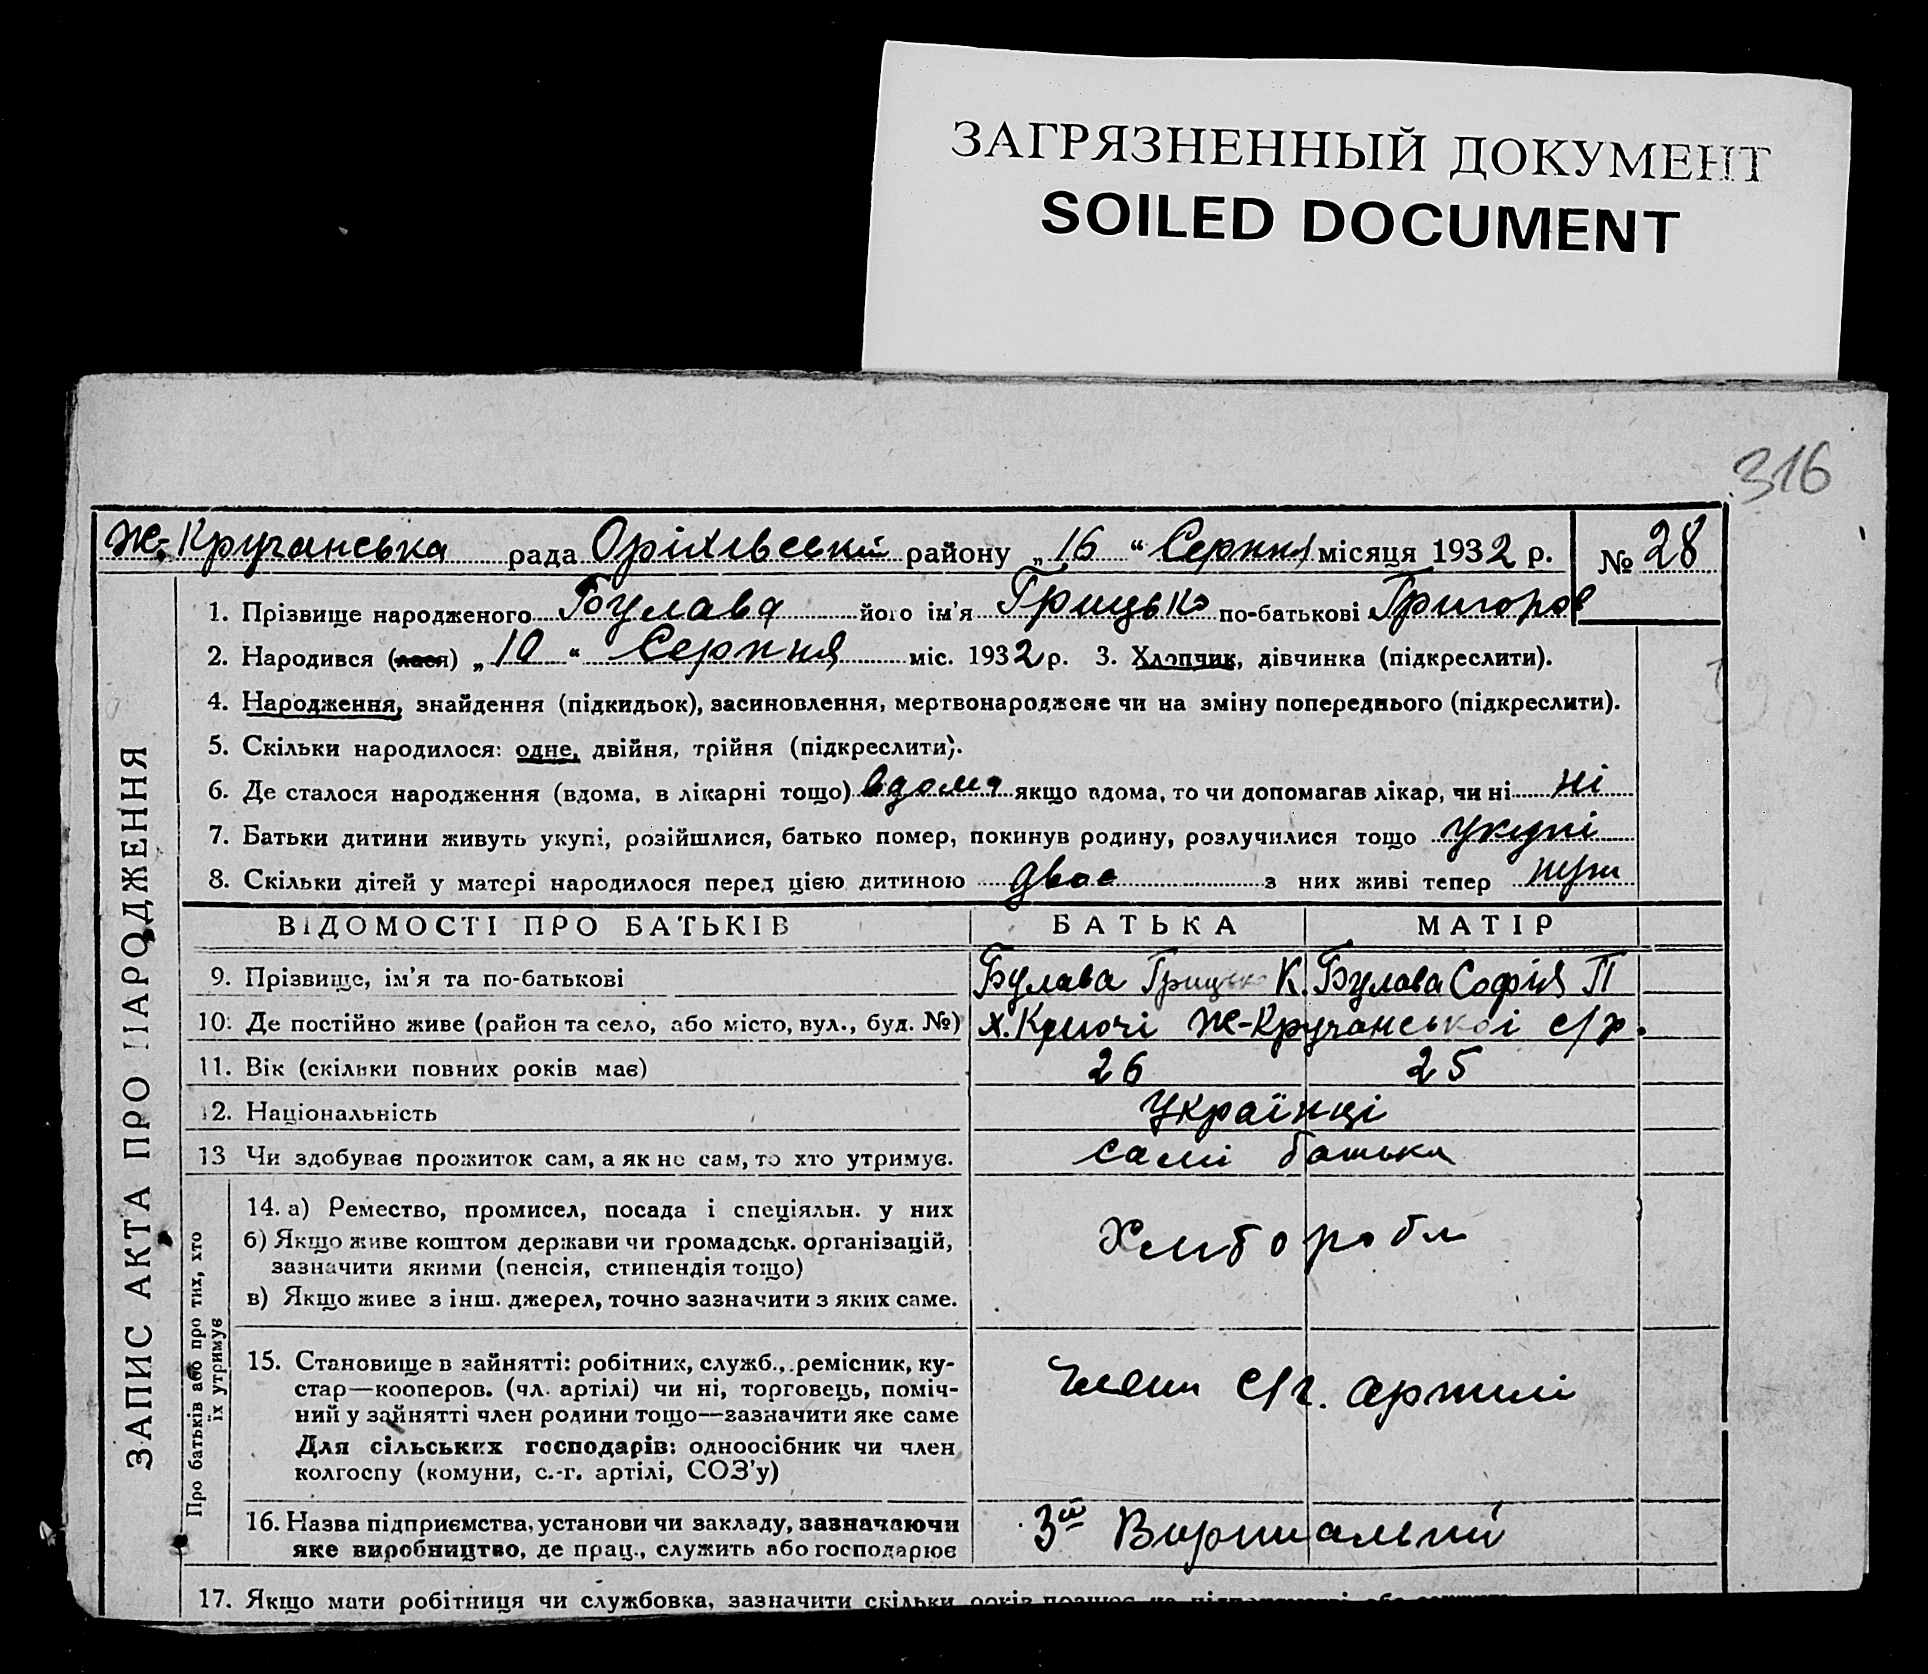 ЗАГРЯЗНЕННЫЙ ДОКУМЕНТ
SOILED DOCUMENT
316
Ж-Кручанська рада Оріхівський району „16“ Серпня місяця 1932 р. № 28
ЗАПИС АКТА ПРО НАРОДЖЕННЯ
1. Прізвище народженого Булава його ім'я Грицько по-батькові Григоров
2. Народився (лася) „10“ Серпня міс. 1932 р. 3. Хлопчик, дівчинка (підкреслити).
4. Народження, знайдення (підкидьок), засиновлення, мертвонароджене чи на зміну попереднього (підкреслити).
5. Скільки народилося: одне, двійня, трійня (підкреслити).
6. Де сталося народження (вдома, в лікарні тощо) вдома якщо вдома, то чи допомагав лікар, чи ні ні
7. Батьки дитини живуть укупі, розійшлися, батько помер, покинув родину, розлучилися тощо укупі
8. Скільки дітей у матері народилося перед цією дитиною двоє з них живі тепер
ВІДОМОСТІ ПРО БАТЬКІВ БАТЬКА МАТІР
9. Прізвище, ім'я та по-батькові Булава Грицько К. Булава Софія П
10. Де постійно живе (район та село, або місто, вул., буд. №) х. Ключі Ж-Кручанської с/р.
11. Вік (скільки повних років має) 26 25
12. Національність Українці
13 Чи здобуває прожиток сам, а як не сам, то хто утримує. самі батьки
Про батьків або про тих, хто їх утримує
14. а) Ремество, промисел, посада і спеціяльн. у них
б) Якщо живе коштом держави чи громадськ. організацій,
зазначити якими (пенсія, стипендія тощо)
Хлібороби
в) Якщо живе з інш. джерел, точно зазначити з яких саме.
15. Становище в зайнятті: робітник, служб., ремісник, ку-
стар—кооперов. (чл. артілі) чи ні, торговець, поміч-
ний у зайнятті член родини тощо—зазначити яке саме
Для сільських господарів: одноосібник чи член
колгоспу (комуни, с.-г. артілі, СОЗ'у)
Члени с/г. артилі
16. Назва підприємства, установи чи закладу, зазначаючи
яке виробництво, де прац., служить або господарює
3й Вирішальний
17. Якщо мати робітниця чи службовка, зазначити скільки років